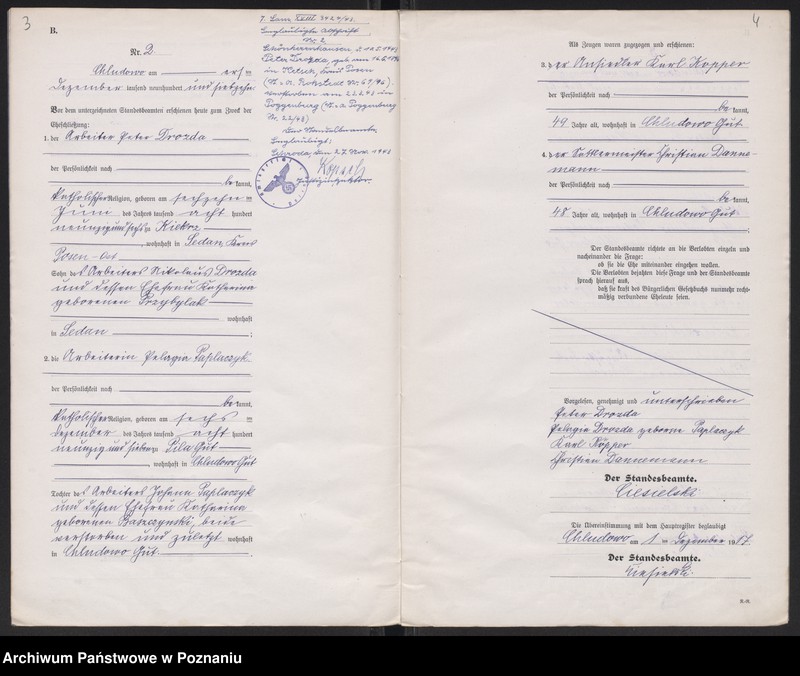 3
B.
Nr. 2
Chludowo am ersten
Dezember tausend neunhundert und siebzehn
Vor dem unterzeichneten Standesbeamten erschienen heute zum Zweck der
Eheschließung:
1. der Arbeiter Peter Drozda
der Persönlichkeit nach
bekannt,
katholischer Religion, geboren am sechzehnten
Juni des Jahres tausend acht hundert
neunzig und sechs in Kiekrz
, wohnhaft in Sedan, Kreis
Posen-Ost
Sohn des Arbeiters Nikolaus Drozda
und dessen Ehefrau Katharina
geborenen Przybylak
wohnhaft
in Sedan ;
2. die Arbeiterin Pelagia Paplaczyk
der Persönlichkeit nach
bekannt,
katholischer Religion, geboren am sechsten
Dezember des Jahres tausend acht hundert
neunzig und sieben in Pila Gut
, wohnhaft in Chludowo Gut
Tochter des Arbeiters Johann Paplaczyk
und dessen Ehefrau Katharina
geborenen Baszczynski, beide
verstorben und zuletzt wohnhaft
in Chludowo Gut .
Beglaubigte Abschrift
Nr. 2
Peter Drozda, geb. am
Kreis Posen
verstorben am
Poggenburg (St. A. Poggenburg
Der Standesbeamte,
Beglaubigt:
Schroda, den 27. Nov. 1943
Justizinspektor.
4
Als Zeugen waren zugezogen und erschienen:
3. der Ansiedler Karl Köpper
der Persönlichkeit nach
bekannt,
49 Jahre alt, wohnhaft in Chludowo Gut
4. der Sattlermeister Christian Danne-
mann
der Persönlichkeit nach
bekannt,
48 Jahre alt, wohnhaft in Chludowo Gut
;
Der Standesbeamte richtete an die Verlobten einzeln und
nacheinander die Frage:
ob sie die Ehe miteinander eingehen wollen.
Die Verlobten bejahten diese Frage und der Standesbeamte
sprach hierauf aus,
daß sie kraft des Bürgerlichen Gesetzbuchs nunmehr recht-
mäßig verbundene Eheleute seien.
Vorgelesen, genehmigt und unterschrieben
Peter Drozda
Pelagia Drozda geborne Paplaczyk
Karl Köpper
Christian Dannemann
Der Standesbeamte.
Ciesielski
Die Übereinstimmung mit dem Hauptregister beglaubigt
Chludowo am 1 ten Dezember 1917
Der Standesbeamte.
Ciesielski.
Archiwum Państwowe w Poznaniu